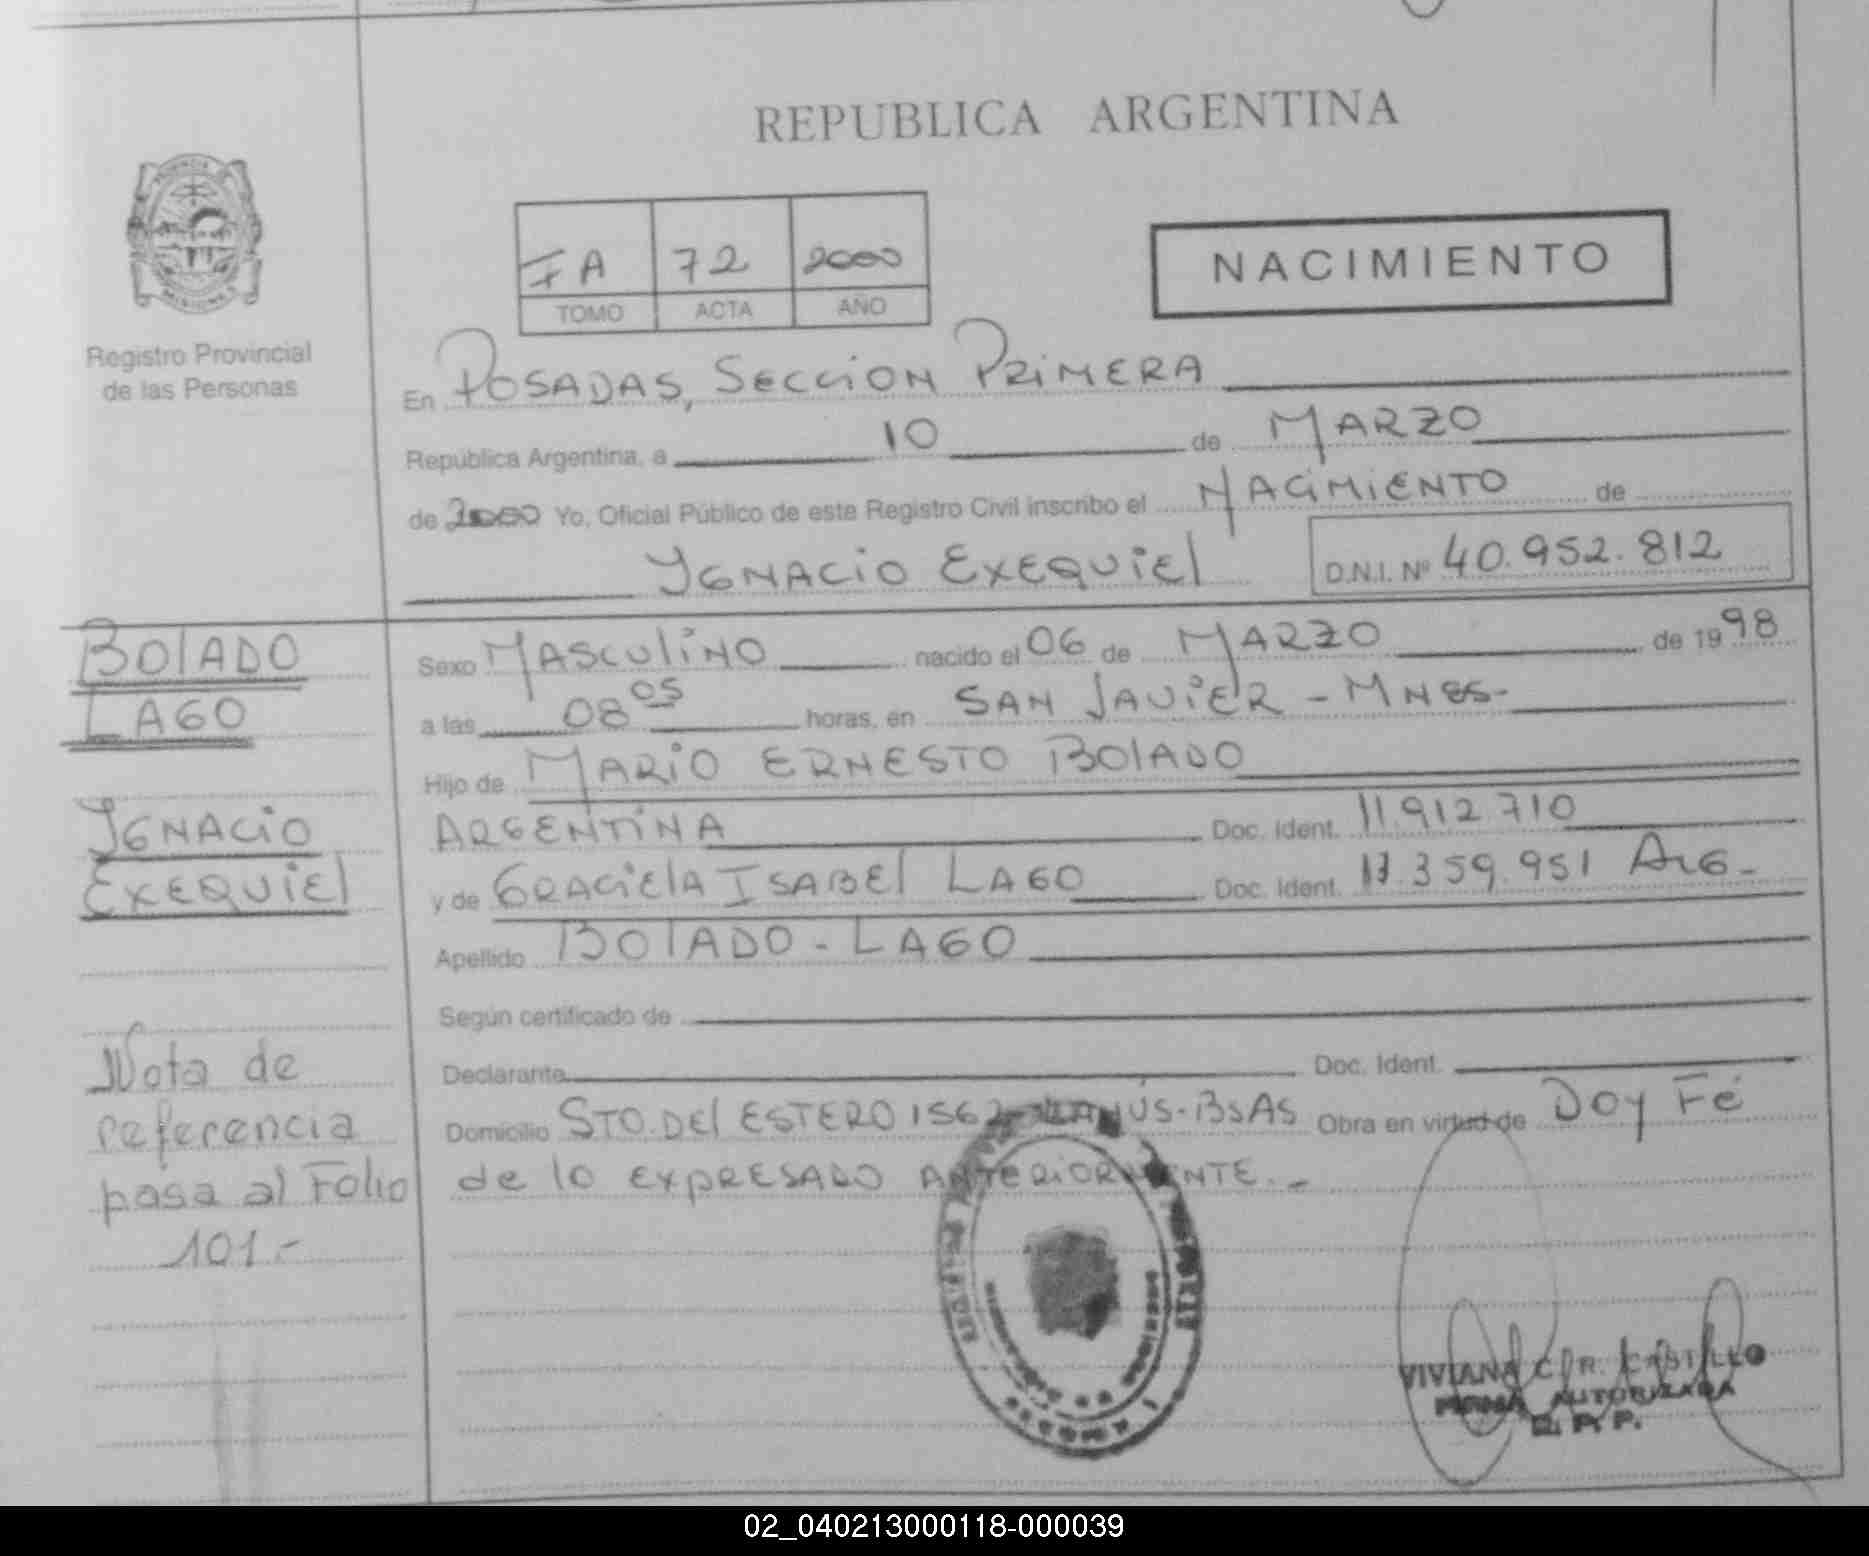 REPUBLICA ARGENTINA
Registro Provincial
de las Personas
FA 72 2000
TOMO ACTA AÑO
NACIMIENTO
En POSADAS, SECCION PRIMERA
Republica Argentina, a 10 de MARZO
de 2000 Yo, Oficial Público de este Registro Civil inscribo el NACIMIENTO de
YGNACIO EXEQUIEL D.N.I. Nº 40.952.812
BOLADO
LAGO
YGNACIO
EXEQUIEL
Nota de
referencia
pasa al Folio
101.-
Sexo MASCULINO nacido el 06 de MARZO de 1998
a las 08 05 horas, en SAN JAVIER - MNES-
Hijo de MARIO ERNESTO BOLADO
ARGENTINA Doc. Ident. 11.912.710
y de GRACIELA ISABEL LAGO Doc. Ident. 359.951 ARG-
Apellido BOLADO - LAGO
Según certificado de
Declarante Doc. Ident.
Domicilio STO. DEL ESTERO 1562 LANÚS-BSAS Obra en virtud de DOY FÉ
de lo EXPRESADO ANTERIORMENTE.-
VIVIANA C. R. CASTILLO
FIRMA AUTORIZADA
R. P. P.
02_040213000118-000039